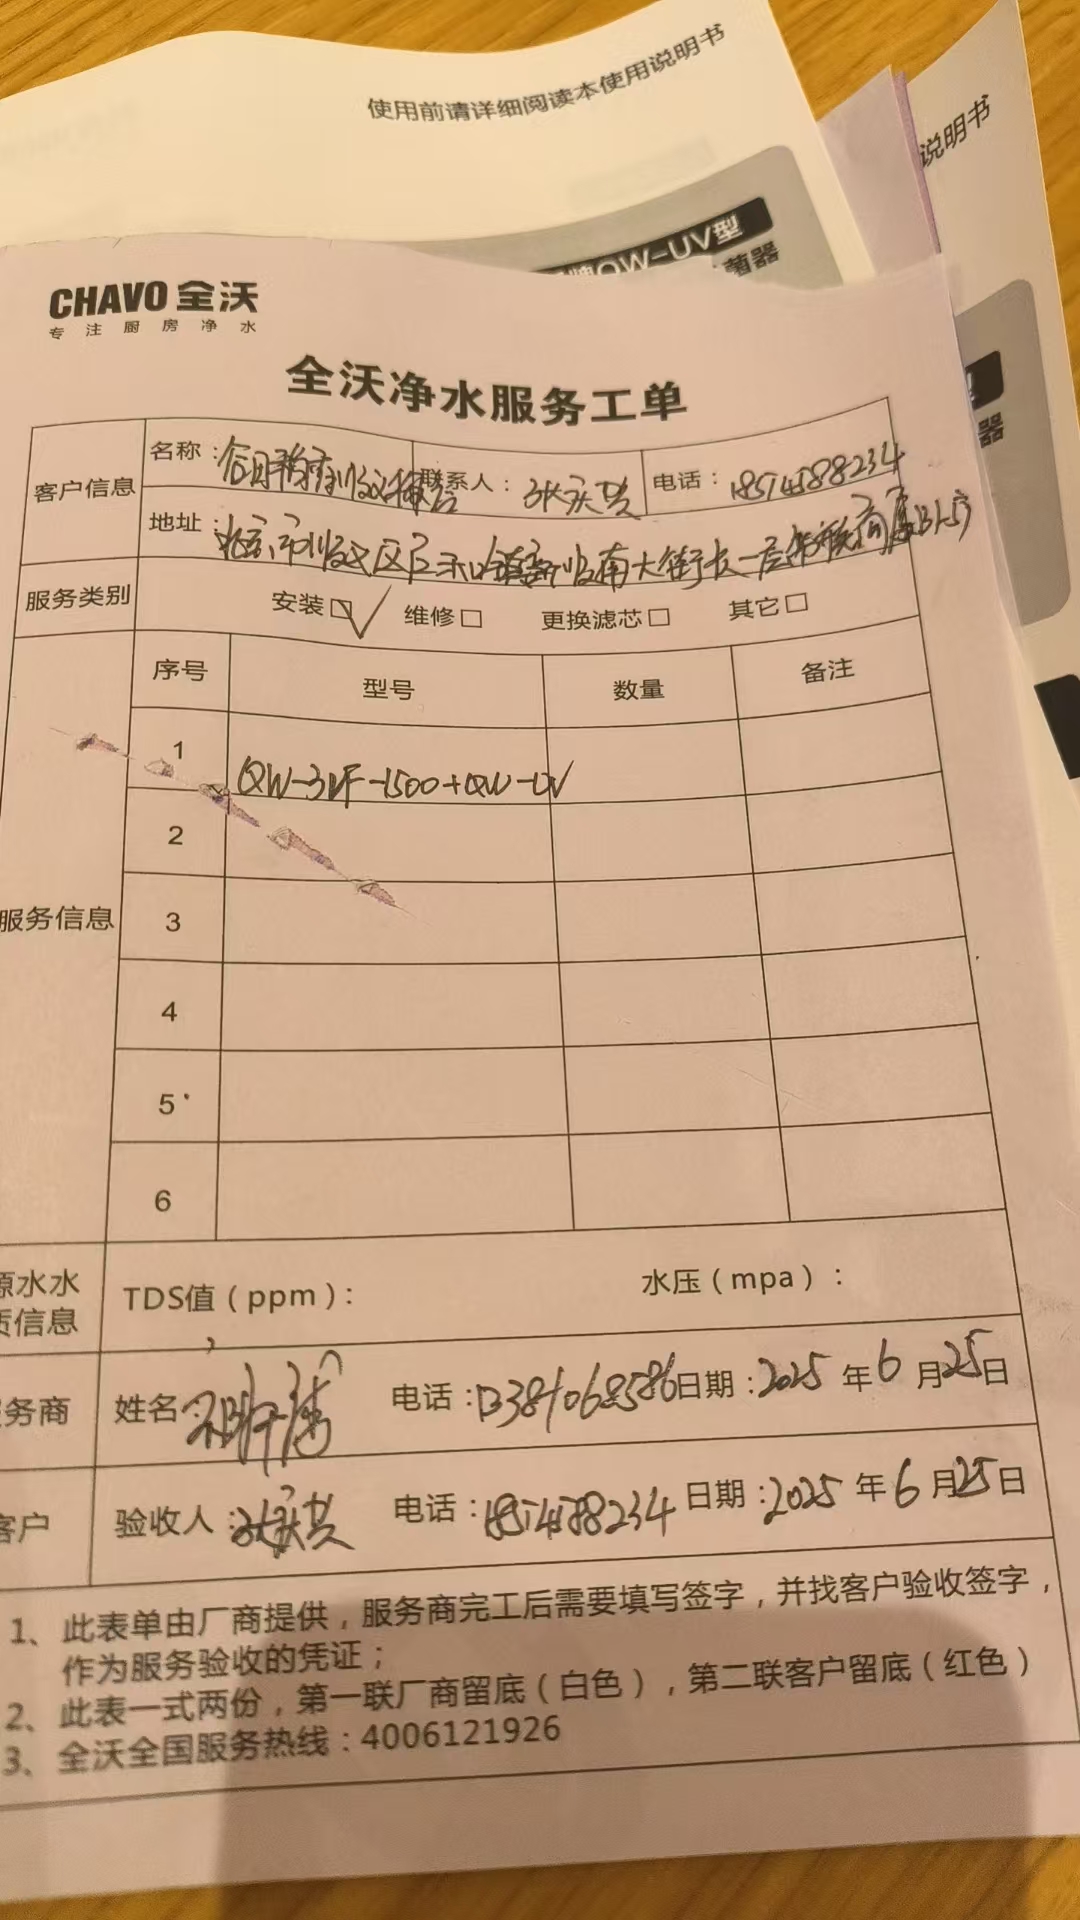 使用前请详细阅读本使用说明书
说明书
QW-UV型
菌器
型
器
CHAVO 全沃
专注厨房净水
全沃净水服务工单
客户信息
名称：
联系人：张庆兴
电话：18514588234
地址：北京市顺义区
南大街
一层
服务类别
安装☑ 维修□ 更换滤芯□ 其它□
服务信息
序号 型号 数量 备注
1 QW-3VF-1500+QW-UV
2
3
4
5
6
源水水
质信息
TDS值（ppm）： 水压（mpa）：
服务商 姓名： 电话：13381068586 日期：2025 年 6 月 25 日
客户 验收人：张庆兴 电话：18514588234 日期：2025 年 6 月 25 日
1、此表单由厂商提供，服务商完工后需要填写签字，并找客户验收签字，
作为服务验收的凭证；
2、此表一式两份，第一联厂商留底（白色），第二联客户留底（红色）
3、全沃全国服务热线：4006121926